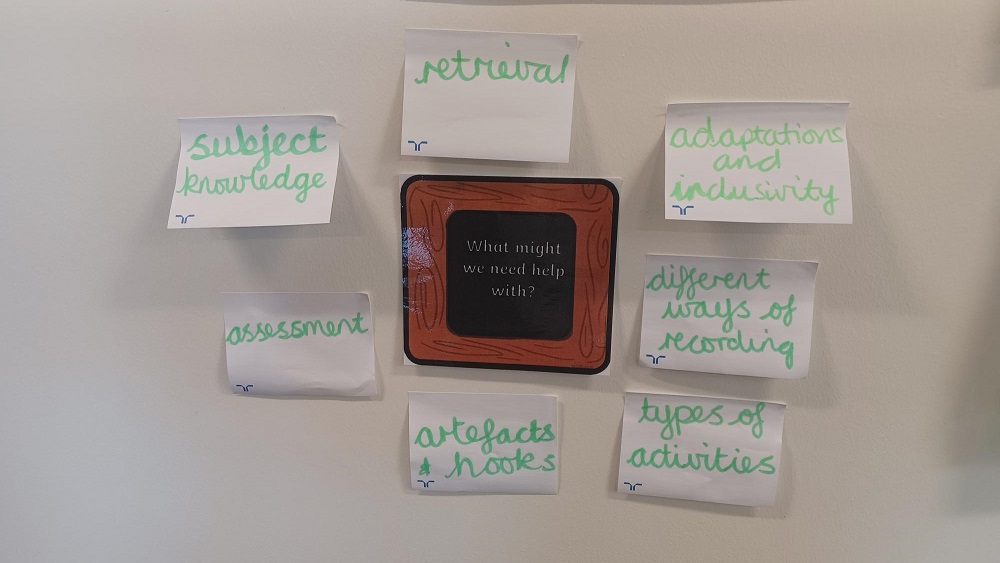 retrieval
subject
knowledge
adaptations
and
inclusivity
What might
we need help
with?
different
ways of
recording
assessment
artefacts
& hooks
types of
activities